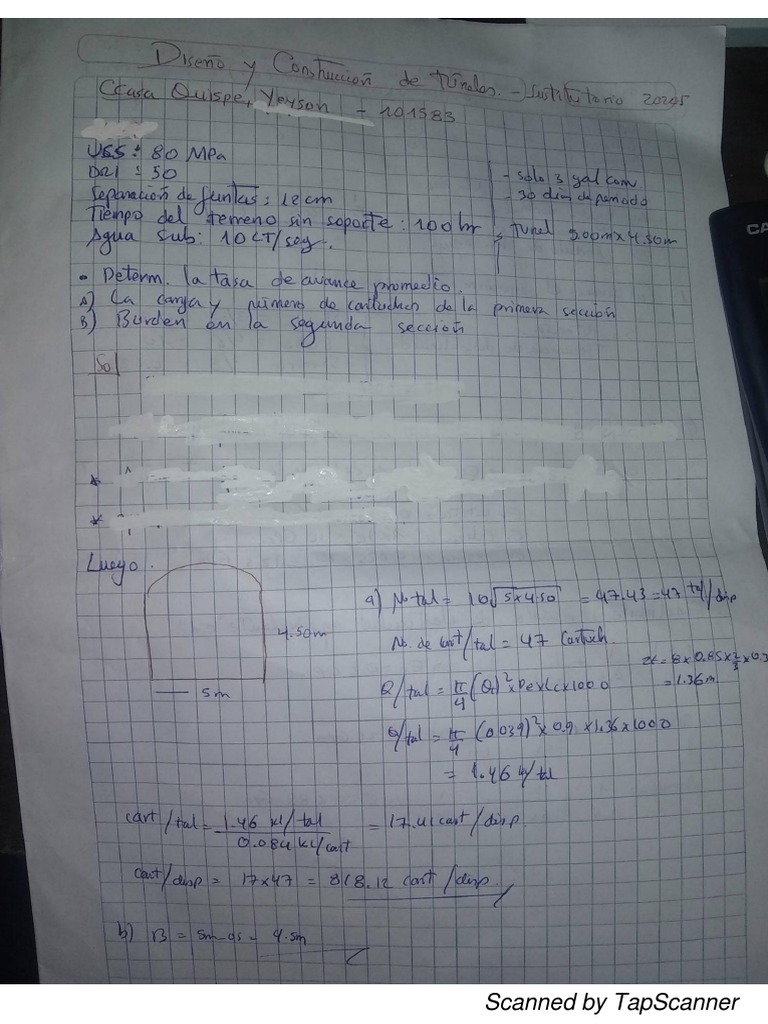 Diseño y Construcción de túneles. - Sustitutorio 2024
Ccasa Quispe, Yeyson - 101583
UCS: 80 MPa
DRI: 50
Separación de Juntas: 12 cm
Tiempo del terreno sin soporte: 100 hr
Agua Sub: 10 LT/seg.
- solo 3 gal com
- 30 días
Tunel 5.00m x 4.50m
• Determ. la tasa de avance promedio.
A) La carga y número de cartuchos de la primera sección
B) Burden en la segunda sección
Sol
*
*
Luego.
4.50m
5m
a) No tal = 10√5x4.50 = 47.43 = 47 tal/disp
No. de cart/tal = 47 Cartuch.
= 8 x 0.85 x 2/3 x
= 1.36 m
Q/tal = π/4 (Ø)² x De x Lc x 1000
Q/tal = π/4 (0.039)² x 0.9 x 1.36 x 1000
= 1.46 /tal
cart/tal = 1.46 kl/tal / 0.084 kl/cart = 17.41 cart/disp
cart/disp = 17x47 = 818.12 cart/disp
b) B = 5m - 0.5 = 4.5m
Scanned by TapScanner